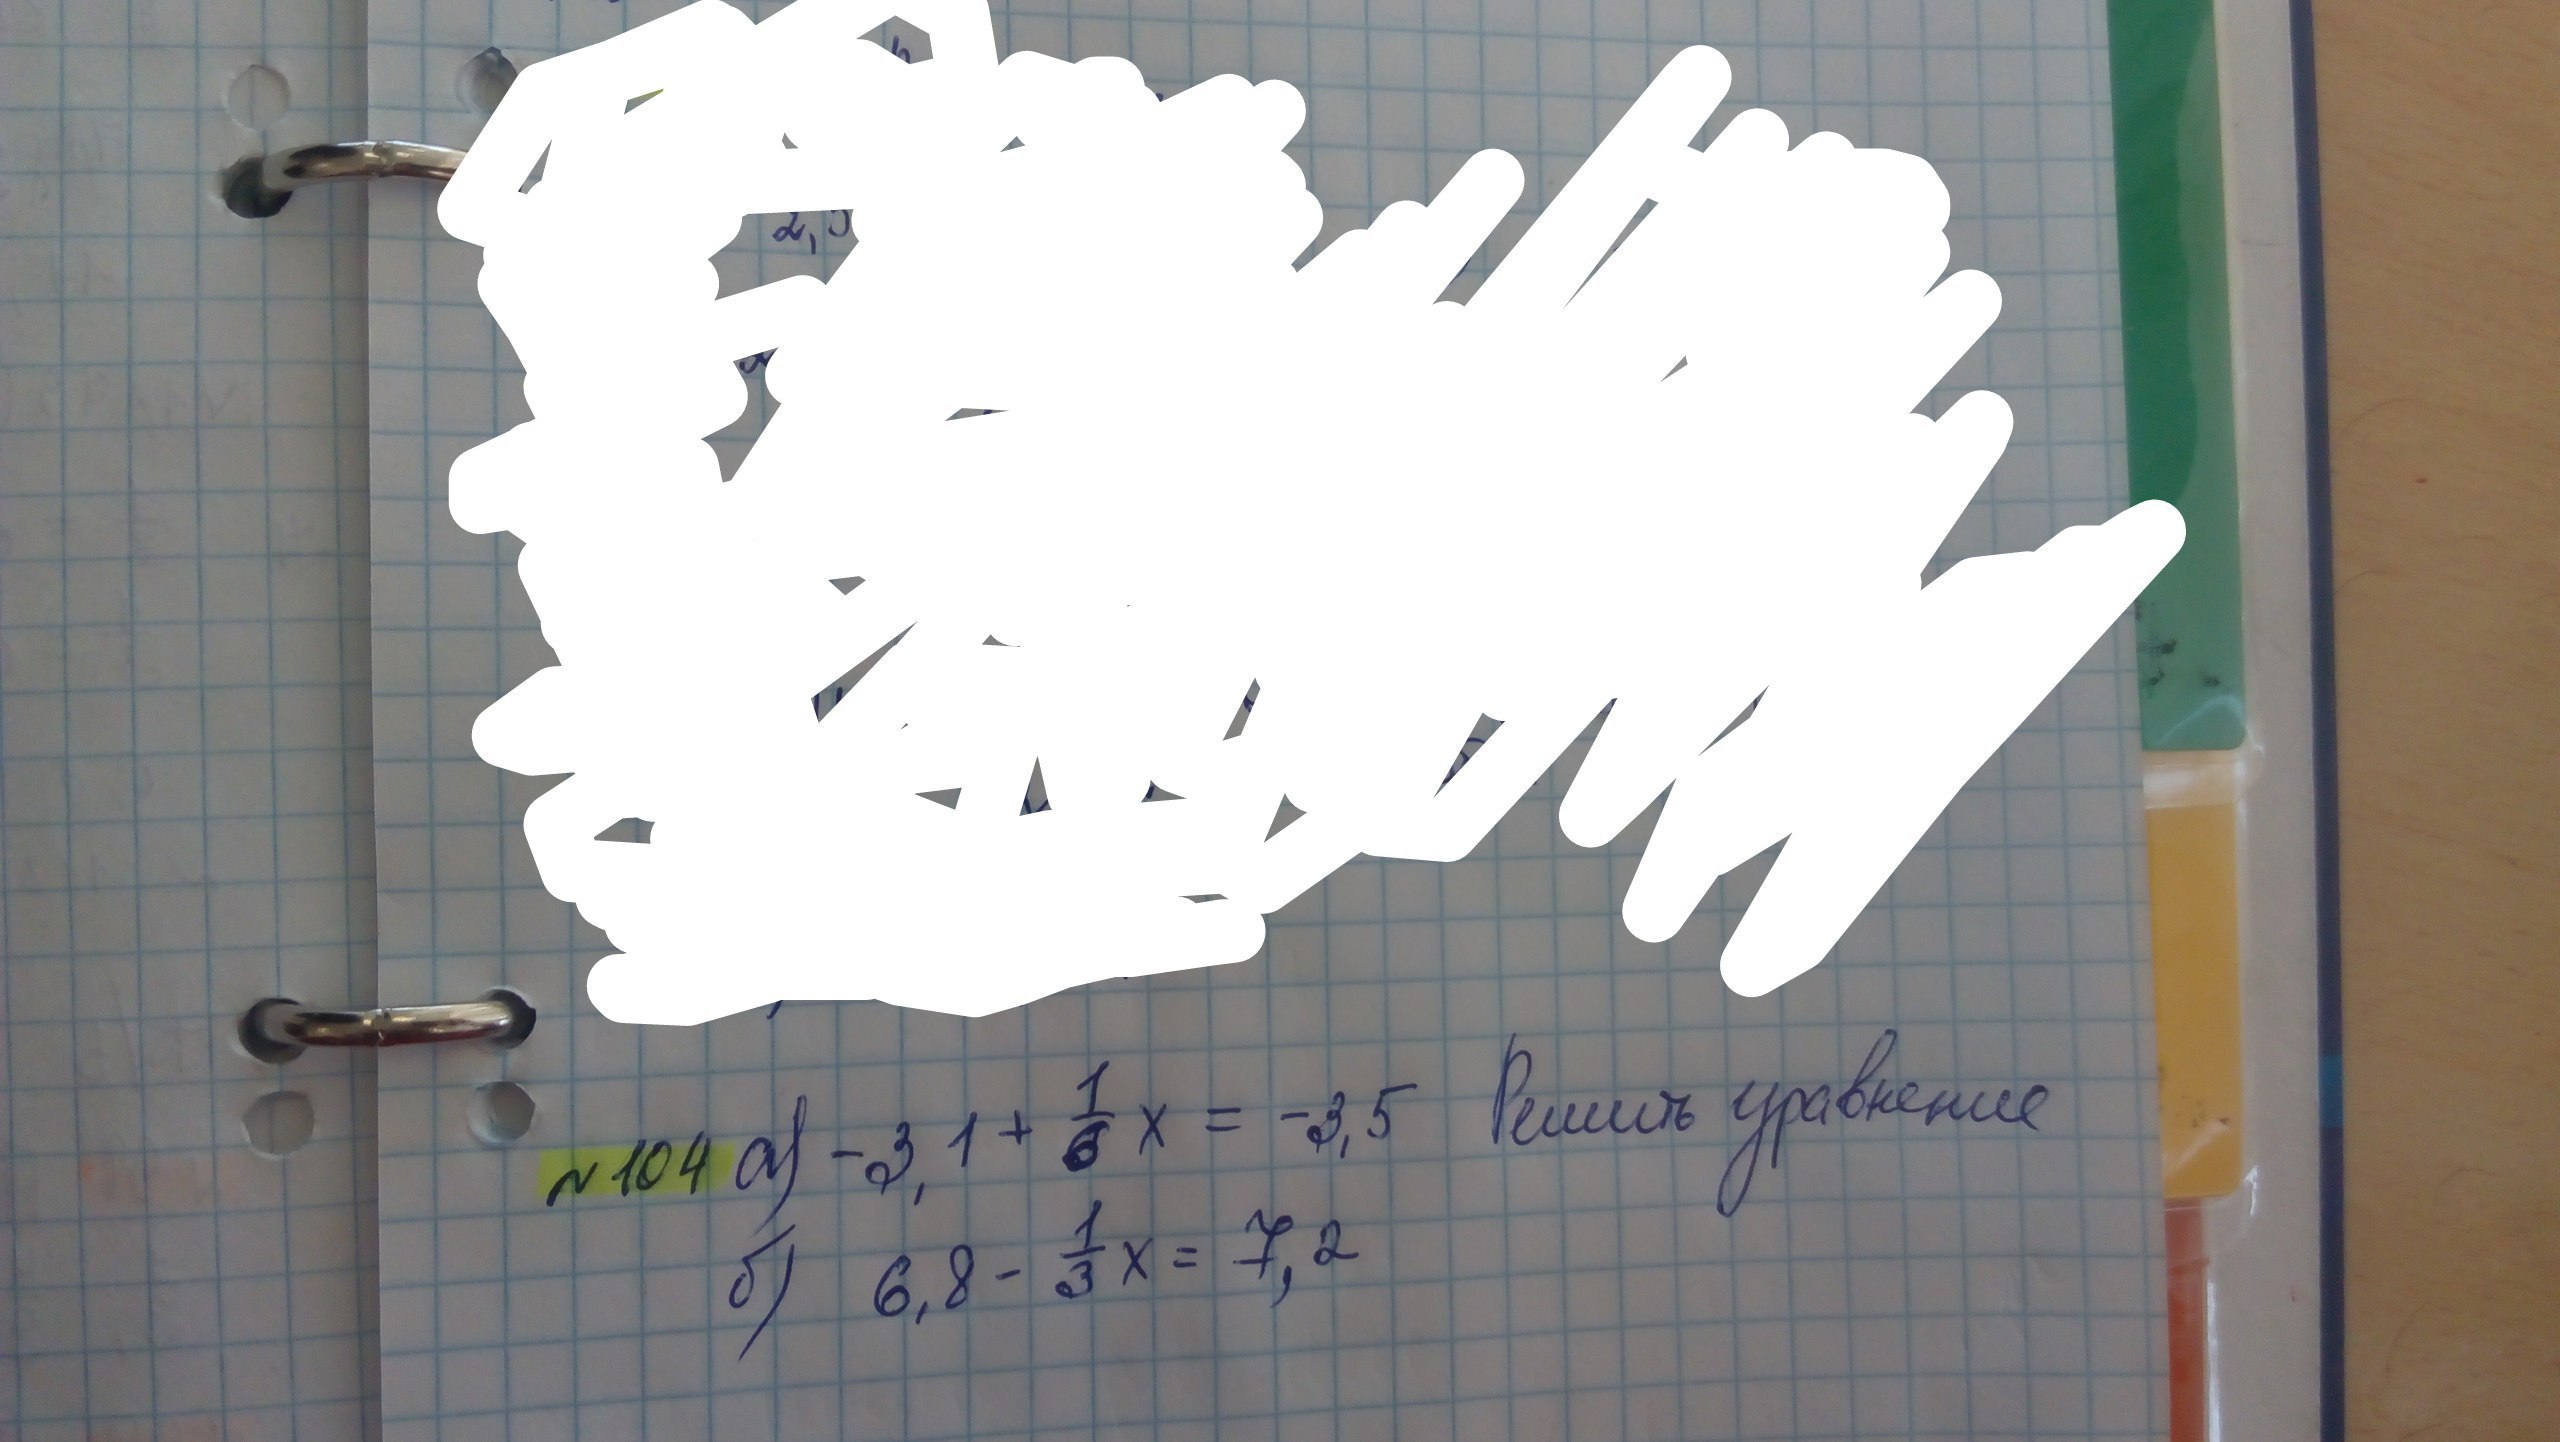 2,5
№104 а) -3,1 + 1/6 x = -3,5 Решить уравнение
б) 6,8 - 1/3 x = 7,2